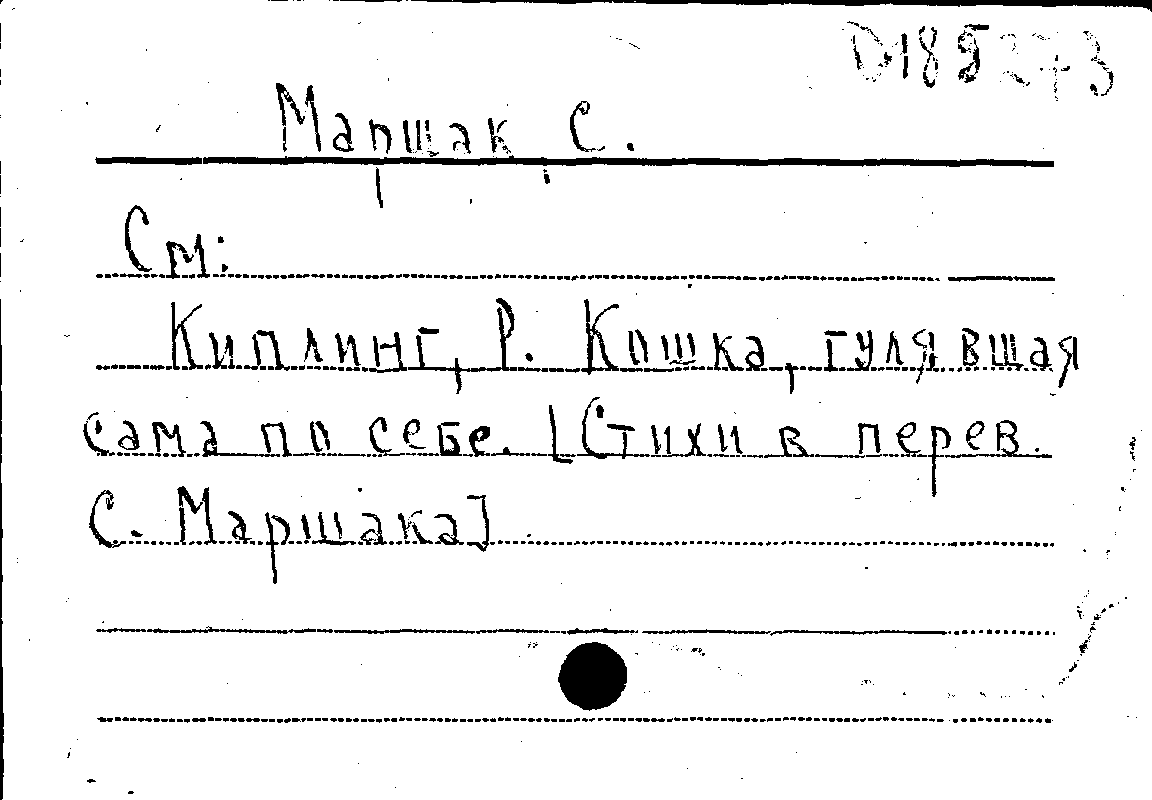 Маршак С.
См:
Киплинг, Р. Кошка, гулявшая
сама по себе. [Стихи в перев.
С. Маршака]